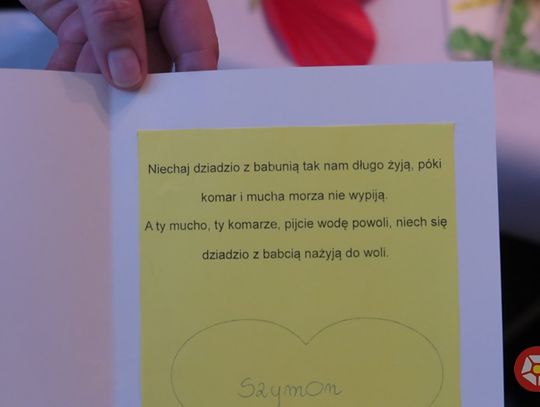 Niechaj dziadzio z babunią tak nam długo żyją, póki
komar i mucha morza nie wypiją.
A ty mucho, ty komarze, pijcie wodę powoli, niech się
dziadzio z babcią nażyją do woli.
Szymon